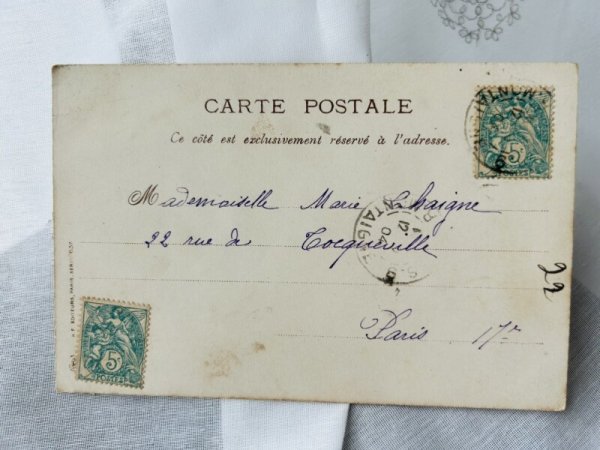 CARTE POSTALE
Ce côté est exclusivement réservé à l'adresse.
Mademoiselle Marie
22 rue de Tocqueville
Paris 17e
22
5
5